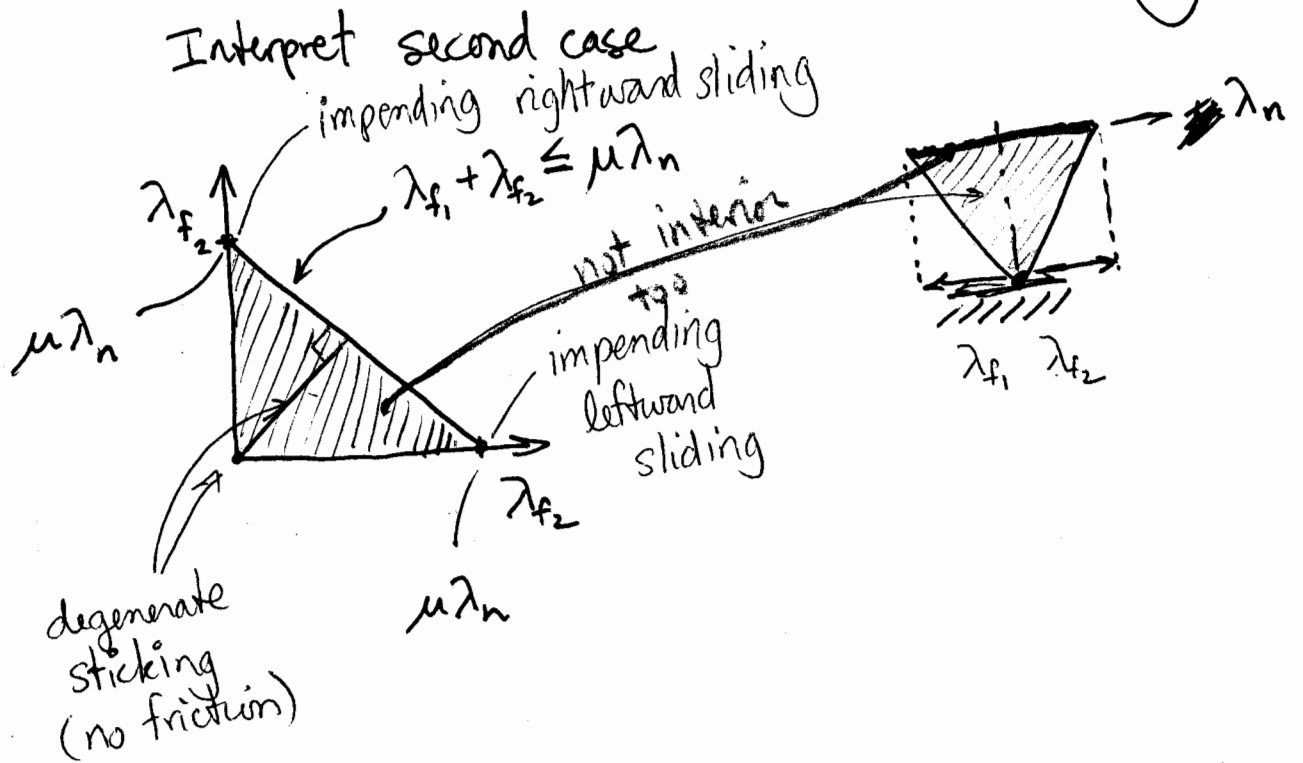 Interpret second case
impending rightward sliding
λf₁ + λf₂ ≤ μλn
λf₂
μλn
not interior
too
impending
leftward
sliding
λf₂
μλn
degenerate
sticking
(no friction)
λn
λf₁ λf₂